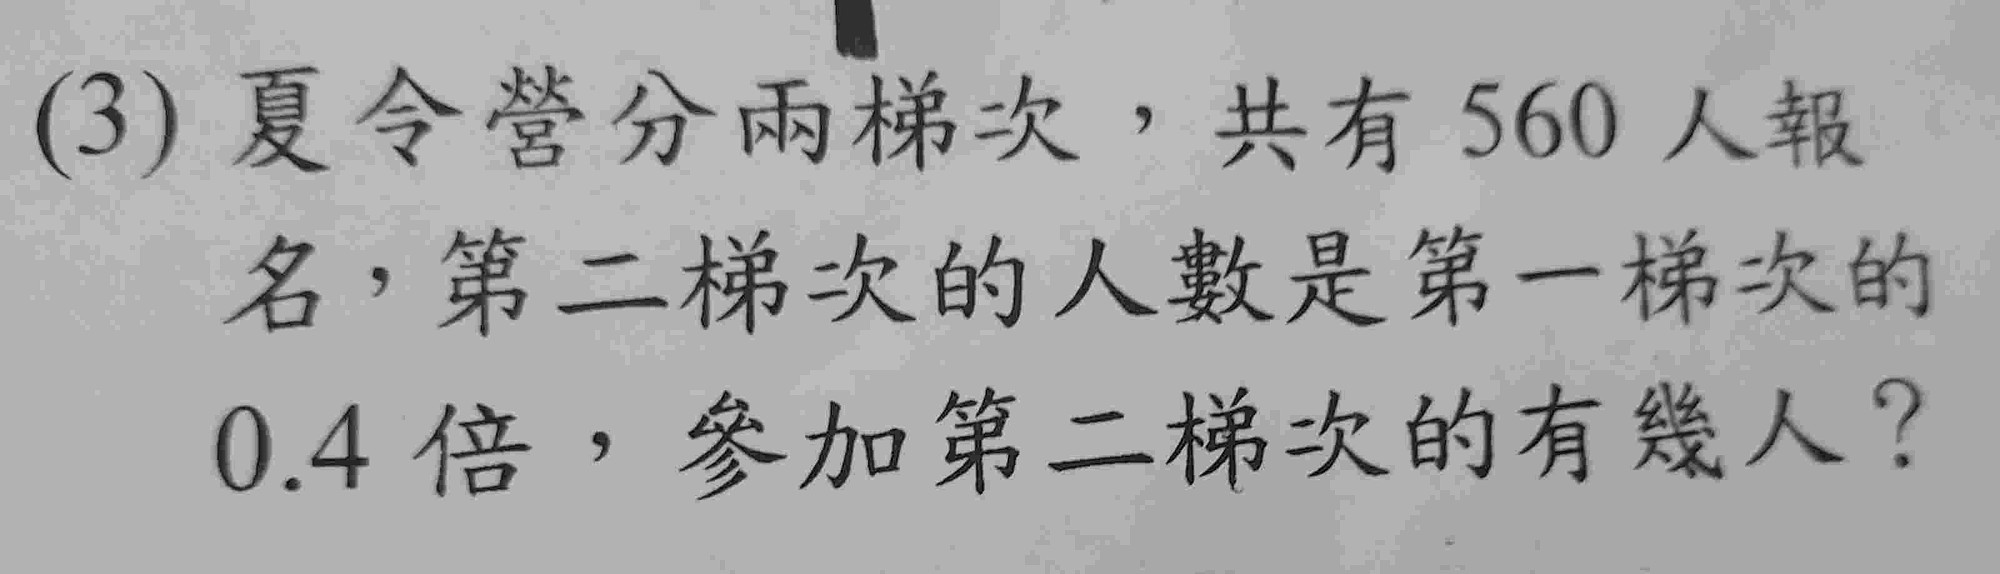 (3) 夏令營分兩梯次，共有 560 人報
名，第二梯次的人數是第一梯次的
0.4 倍，參加第二梯次的有幾人？